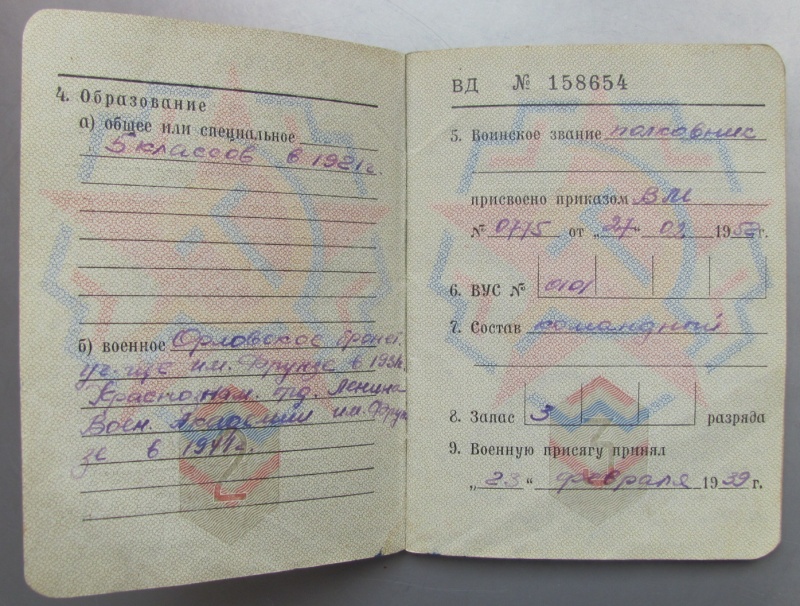 4. Образование
а) общее или специальное
5 классов в 1921г.
б) военное Орловское бронет.
уч-ще им. Фрунзе в 1931г.
Краснознам. орд. Ленина
Воен. Академии им. Фрун
зе в 1941г.
2
ВД № 158654
5. Воинское звание полковник
присвоено приказом ВМ
№ 0775 от „27“ 02 195 г.
6. ВУС № 0101
7. Состав командный
8. Запас 3 разряда
9. Военную присягу принял
„23“ февраля 1939 г.
3